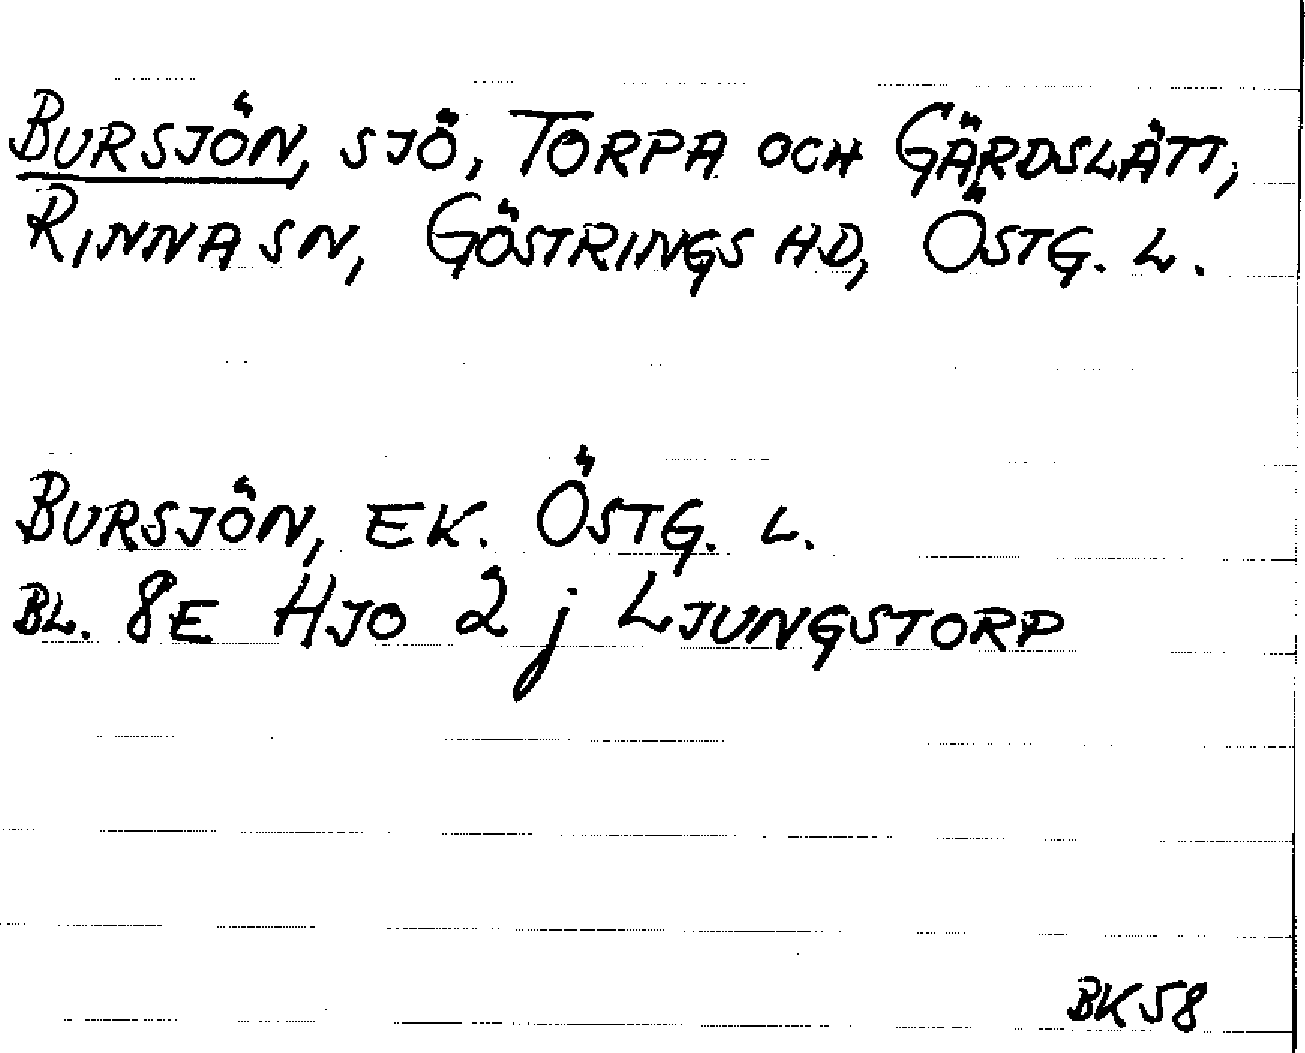 BURSJÖN, SJÖ, TORPA OCH GÄRDSLÄTT,
RINNA SN, GÖSTRINGS HD, ÖSTG. L.
BURSJÖN, EK. ÖSTG. L.
BL. 8E HJO 2j LJUNGSTORP
BK58